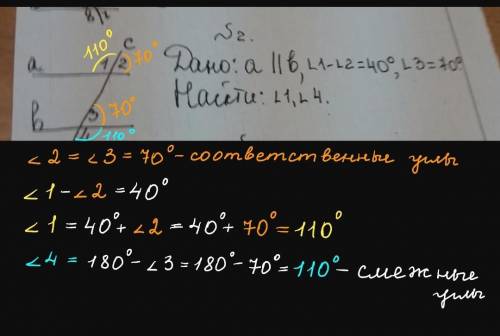 №2.
110° c
a 1 2 70°
Дано: a || b, ∠1-∠2=40°, ∠3=70°
Найти: ∠1, ∠4.
b 3 70°
4 110°
∠2 = ∠3 = 70° - соответственные углы
∠1 - ∠2 = 40°
∠1 = 40° + ∠2 = 40° + 70° = 110°
∠4 = 180° - ∠3 = 180° - 70° = 110° - смежные
углы